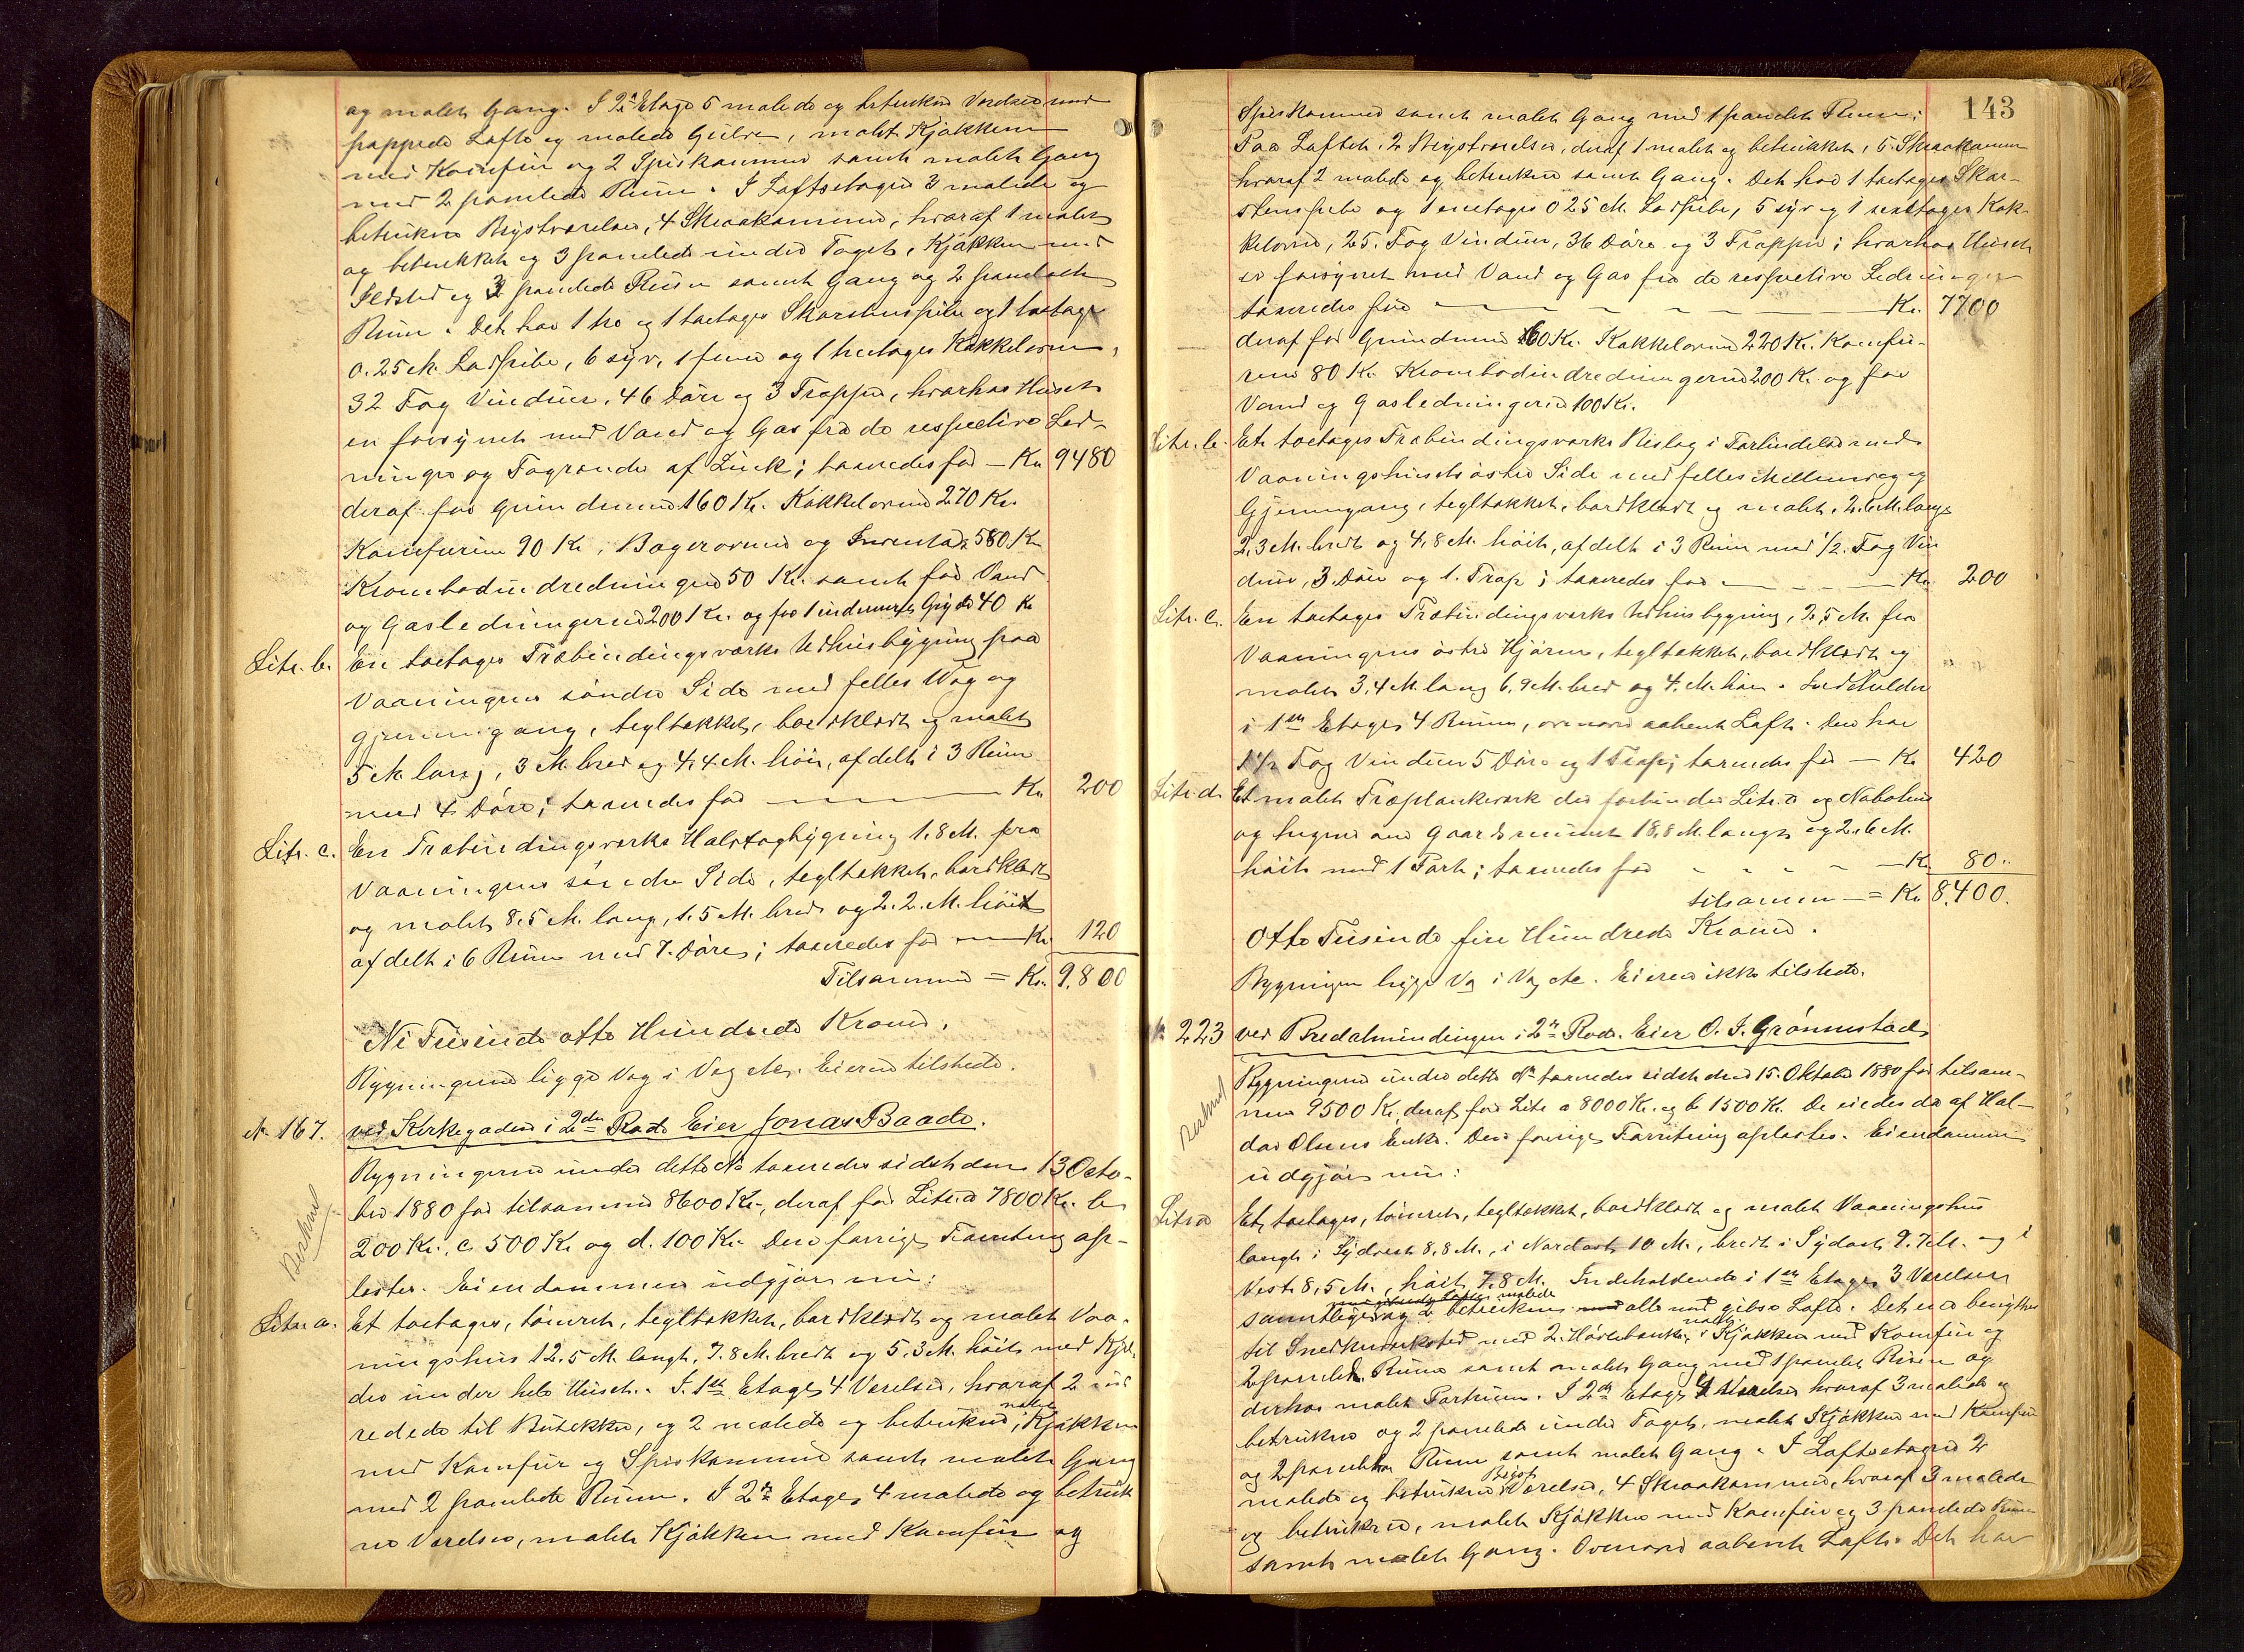 og malet Gang. I 2den Etage 5 malede og betrukne Værelser med
pappede Lofte og malede Gulve, malet Kjøkken
med Komfur og 2 Spiskammer samt malet Gang
med 2 panelede Rum. I Loftsetagen 3 malede og
betrukne Bigstværelser, 4 Skraakammer, hvoraf 1 malet
og betrukket og 3 panelede under Taget, Kjøkken med
Ildsted og 3 panelede Rum samt Gang og 2 panelede
Rum. Det har 1 tre og 1 toetages Skorstenspibe og 1 toetages
0.25 M. Lodpibe, 6 syv, 1 fem og 1 treetages Kakkelovne,
32 Fag Vinduer, 46 Døre og 3 Trapper, hvorhos Huset
er forsynet med Vand og Gas fra de respective Led-
ninger og Tagrende af Zink; taxeredes for — Kr. 9480
deraf for Grundmuren 160 Kr. Kakkelovne 270 Kr.
Komfurene 90 Kr, Bagerovne og 580 Kr
Krambodindredningen 50 Kr. samt for Vand
og Gasledningerne 200 Kr. og for 1 indmuret Gryde 40 Kr
Litr. b. En toetages Træbindingsværks Udhusbygning paa
Vaaningens søndre Side med fælles Væg og
Gjennemgang, tegltækket, bordklædt og malet
5 M. lang, 3 M. bred og 4,4 M. høi, afdelt i 3 Rum
med 4 Døre; taxeredes for — Kr. 200
Litr. c. En Træbindingsværks Halvtagbygning 1.8 M. fra
Vaaningens søndre Side, tegltækket, bordklædt
og malet, 8.5 M. lang, 1.5 M. bred og 2.2. M. høit
afdelt i 6 Rum med 7. Døre; taxeredes for — Kr. 120
Tilsammen = Kr. 9.800
Ni Tusinde otte Hundrede Kroner.
Bygningerne ligge Væg i Væg etc. Eieren tilstede.
No 167. ved Kirkegaden i 2den Rode Eier Jonas Baade.
Bygningerne under dette No taxeredes sidst den 13 Octo-
ber 1880 for tilsammen 8600 Kr., deraf for Litr. a 7800 Kr. b
200 Kr., c. 500 Kr og d. 100 Kr. Den forrige Forretning op-
læstes. Eiendommen udgjør nu:
Litr. a. Et toetages, tømret, tegltækket, bordklædt og malet Vaa-
ningshus 12.5 M. langt, 7.8 M. bredt og 5.3 M. høit med Kjæl-
der under hele Huset. I 1ste Etage 4 Værelser, hvoraf 2 ind-
redede til Butikker, og 2 malede og betrukne, malet Kjøkken
med Komfur og Spiskammer samt malet Gang
med 2 panelede Rum. I 2den Etage 4 malede og betruk
ne Værelser, malet Kjøkken med Komfur og
143
Spiskammer samt malet Gang med 1 panelet Rum;
Paa Loftet 2 Bigstværelser, deraf 1 malet og betrukket, 5 Skraakammer
hvoraf 2 malede og betrukne samt Gang. Det har 1 toetages Skor-
stenspibe og 1 eenetages 0 25 M. Lodpibe, 5 syv og 1 sexetages Kak-
kelovne, 25. Fag Vinduer, 36 Døre og 3 Trapper; hvorhos Huset
er forsynet med Vand og Gas fra de respective Ledninger
taxeredes for — Kr. 7700
deraf for Grundmuren 160 Kr. Kakkelovne 220 Kr. Komfu-
rene 80 Kr. Krambodindredningerne 200 Kr. og for
Vand og Gasledningerne 100 Kr.
Litr. b. Et toetages Træbindingsværks Bislag i Forbindelse med
Vaaningshusets østre Side med fælles Mellemvæg og
Gjennemgang, tegltækket, bordklædt og malet, 2.6 M. langt
2,3 M. bredt og 4,8 M. høit, afdelt i 3 Rum med 1/2. Fag Vin
duer, 3 Døre og 1. Trap; taxeredes for — Kr. 200
Litr. c. En toetages Træbindingsværks Udhusbygning, 2,5 M. fra
Vaaningens østre Hjørne, tegltækket, bordklædt og
malet 3,4 M. lang 6,9 M. bred og 4. M. høi. Indeholder
i 1ste Etage 4 Rum, ovenover aabent Loft. Den har
1 1/2 Fag Vinduer 5 Døre og 1 Trap; taxeredes for — Kr. 420
Litr. d. Et malet Træplankeværk der forbinder Litr. a og Nabohus
og hegner om Gaardsrummet 18,8 M. langt og 2.6 M.
høit med 1 Port; taxeredes for — Kr. 80.
tilsammen = Kr. 8.400.
Otte Tusinde fire Hundrede Kroner.
Bygningen ligge Væg i Væg etc. Eieren ikke tilstede.
No 223 ved Bredalmendingen i 2den Rode. Eier O. J. Grønnestad
Bygningerne under dette No taxeredes sidst den 15. Oktober 1880 for tilsam-
men 9500 Kr. deraf for Litr a 8000 Kr. og b 1500 Kr. De eiedes da af Hal-
dor Olsens Enke. Den forrige Forretning oplæstes. Eiendommen
udgjør nu:
Litr a Et toetages, tømret, tegltækket, bordklædt og malet Vaaningshus
langt i Sydvest 8,8 M., i Nordost 10 M., bredt i Sydost 9.7 M. og i
Vest 8,5 M., høit 7.8 M. Indeholdende i 1ste Etage 3 Værelser
samtlige malede betrukne alle med gibse Lofte. Det ene benyttes
til Snedkerværksted med 2 Høvlebænke, malet Kjøkken med Komfur og
2 panelede Rum samt malet Gang med 1 panelet Rum og
derhos malet Portrum. I 2den Etage 4 Værelser hvoraf 3 malede og
betrukne og 2 panelede under Taget, malet Kjøkken med Komfur
og 2 panelede Rum samt malet Gang. I Loftsetagen 2
malede og betrukne Bigstværelser, 4 Skraakammer, hvoraf 3 malede
og betrukne, malet Kjøkken med Komfur og 3 panelede Rum
samt malet Gang. Ovenover aabent Loft. Det har